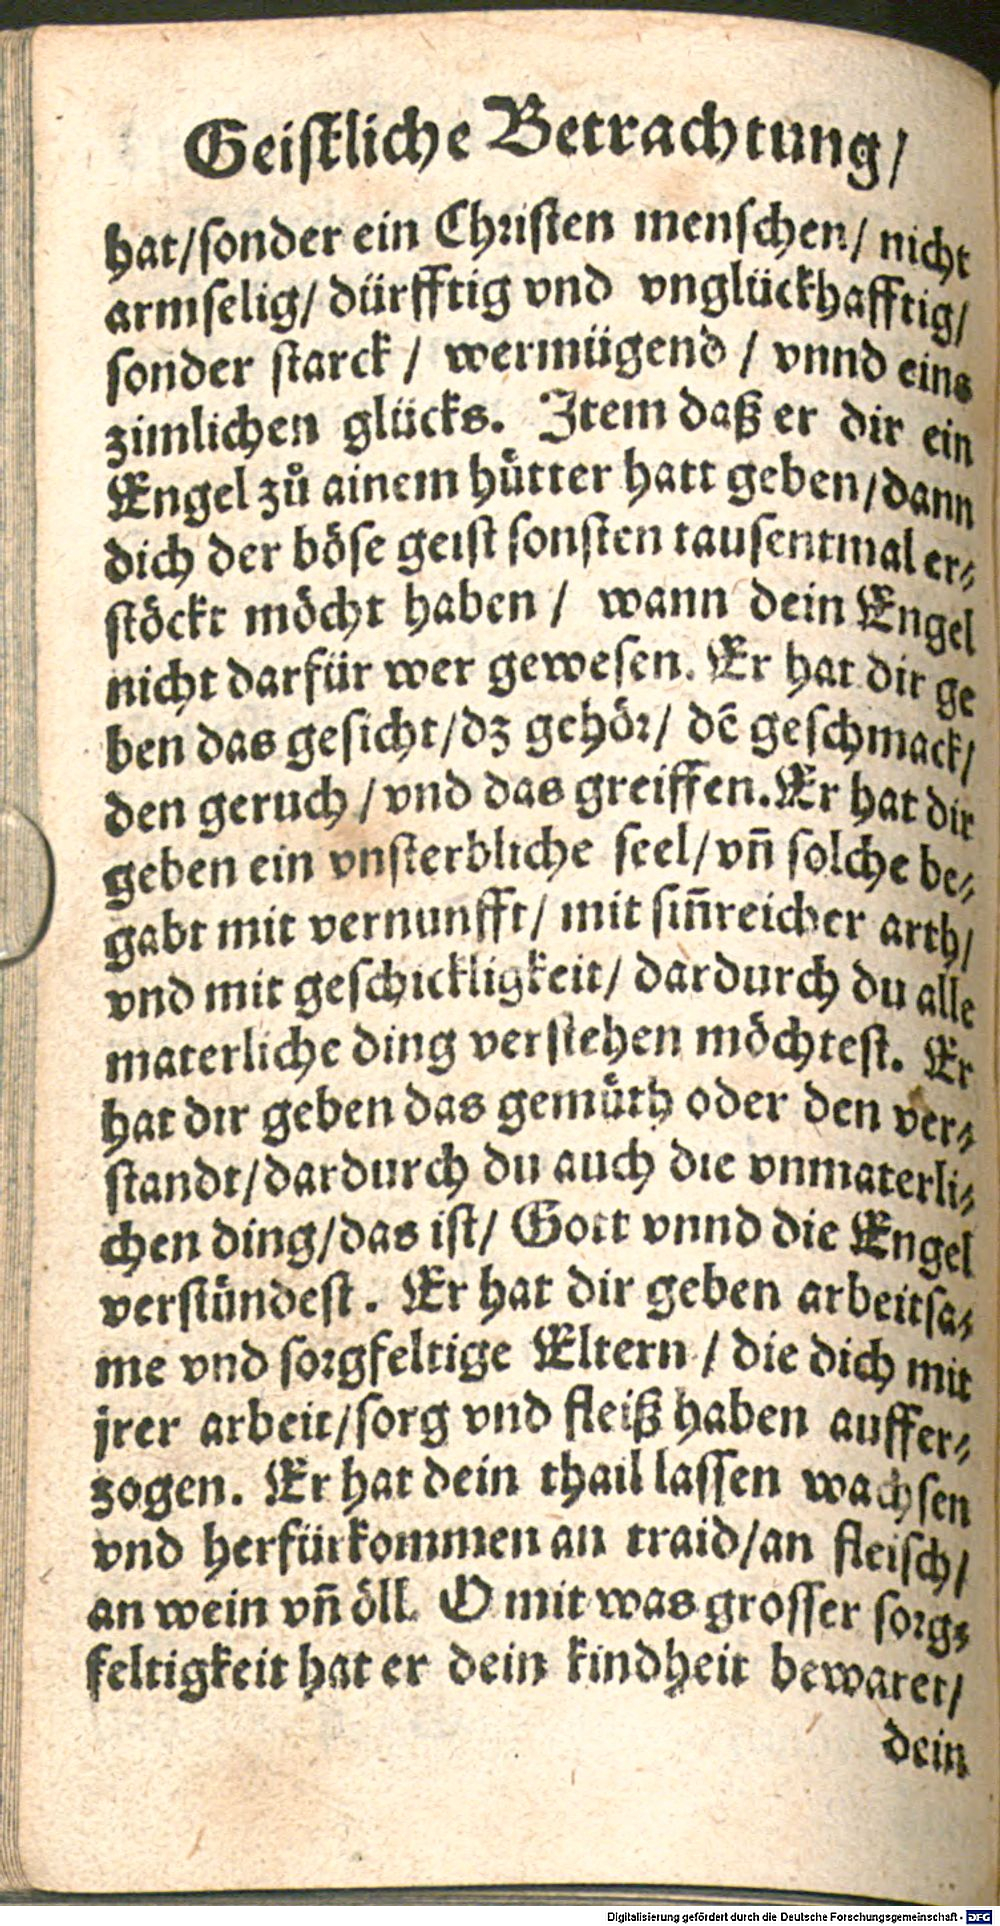 Geistliche Betrachtung/
hat/sonder ein Christen menschen/ nicht
armselig/ dürfftig vnd vnglückhafftig/
sonder starck / wermügend / vnnd eins
zimlichen glücks. Item daß er dir ein
Engel zů ainem hůtter hatt geben/dann
dich der böse geist sonsten tausentmal er⸗
stöckt möcht haben / wann dein Engel
nicht darfür wer gewesen. Er hat dir ge
ben das gesicht/dz gehör/ dē geschmack/
den geruch/vnd das greiffen.Er hat dir
geben ein vnsterbliche seel/vñ solche be⸗
gabt mit vernunfft/ mit siñreicher arth/
vnd mit geschickligkeit/ dardurch du alle
materliche ding verstehen möchtest. Er
hat dir geben das gemůth oder den ver⸗
standt/dardurch du auch die vnmaterli⸗
chen ding/das ist/ Gott vnnd die Engel
verstündest. Er hat dir geben arbeitsa⸗
me vnd sorgfeltige Eltern / die dich mit
jrer arbeit/sorg vnd fleiß haben auffer⸗
zogen. Er hat dein thail lassen wachsen
vnd herfürkommen an traid/an fleisch/
an wein vñ öll. O mit was grosser sorg⸗
feltigkeit hat er dein kindheit bewaret/
dein
Digitalisierung gefördert durch die Deutsche Forschungsgemeinschaft - DFG